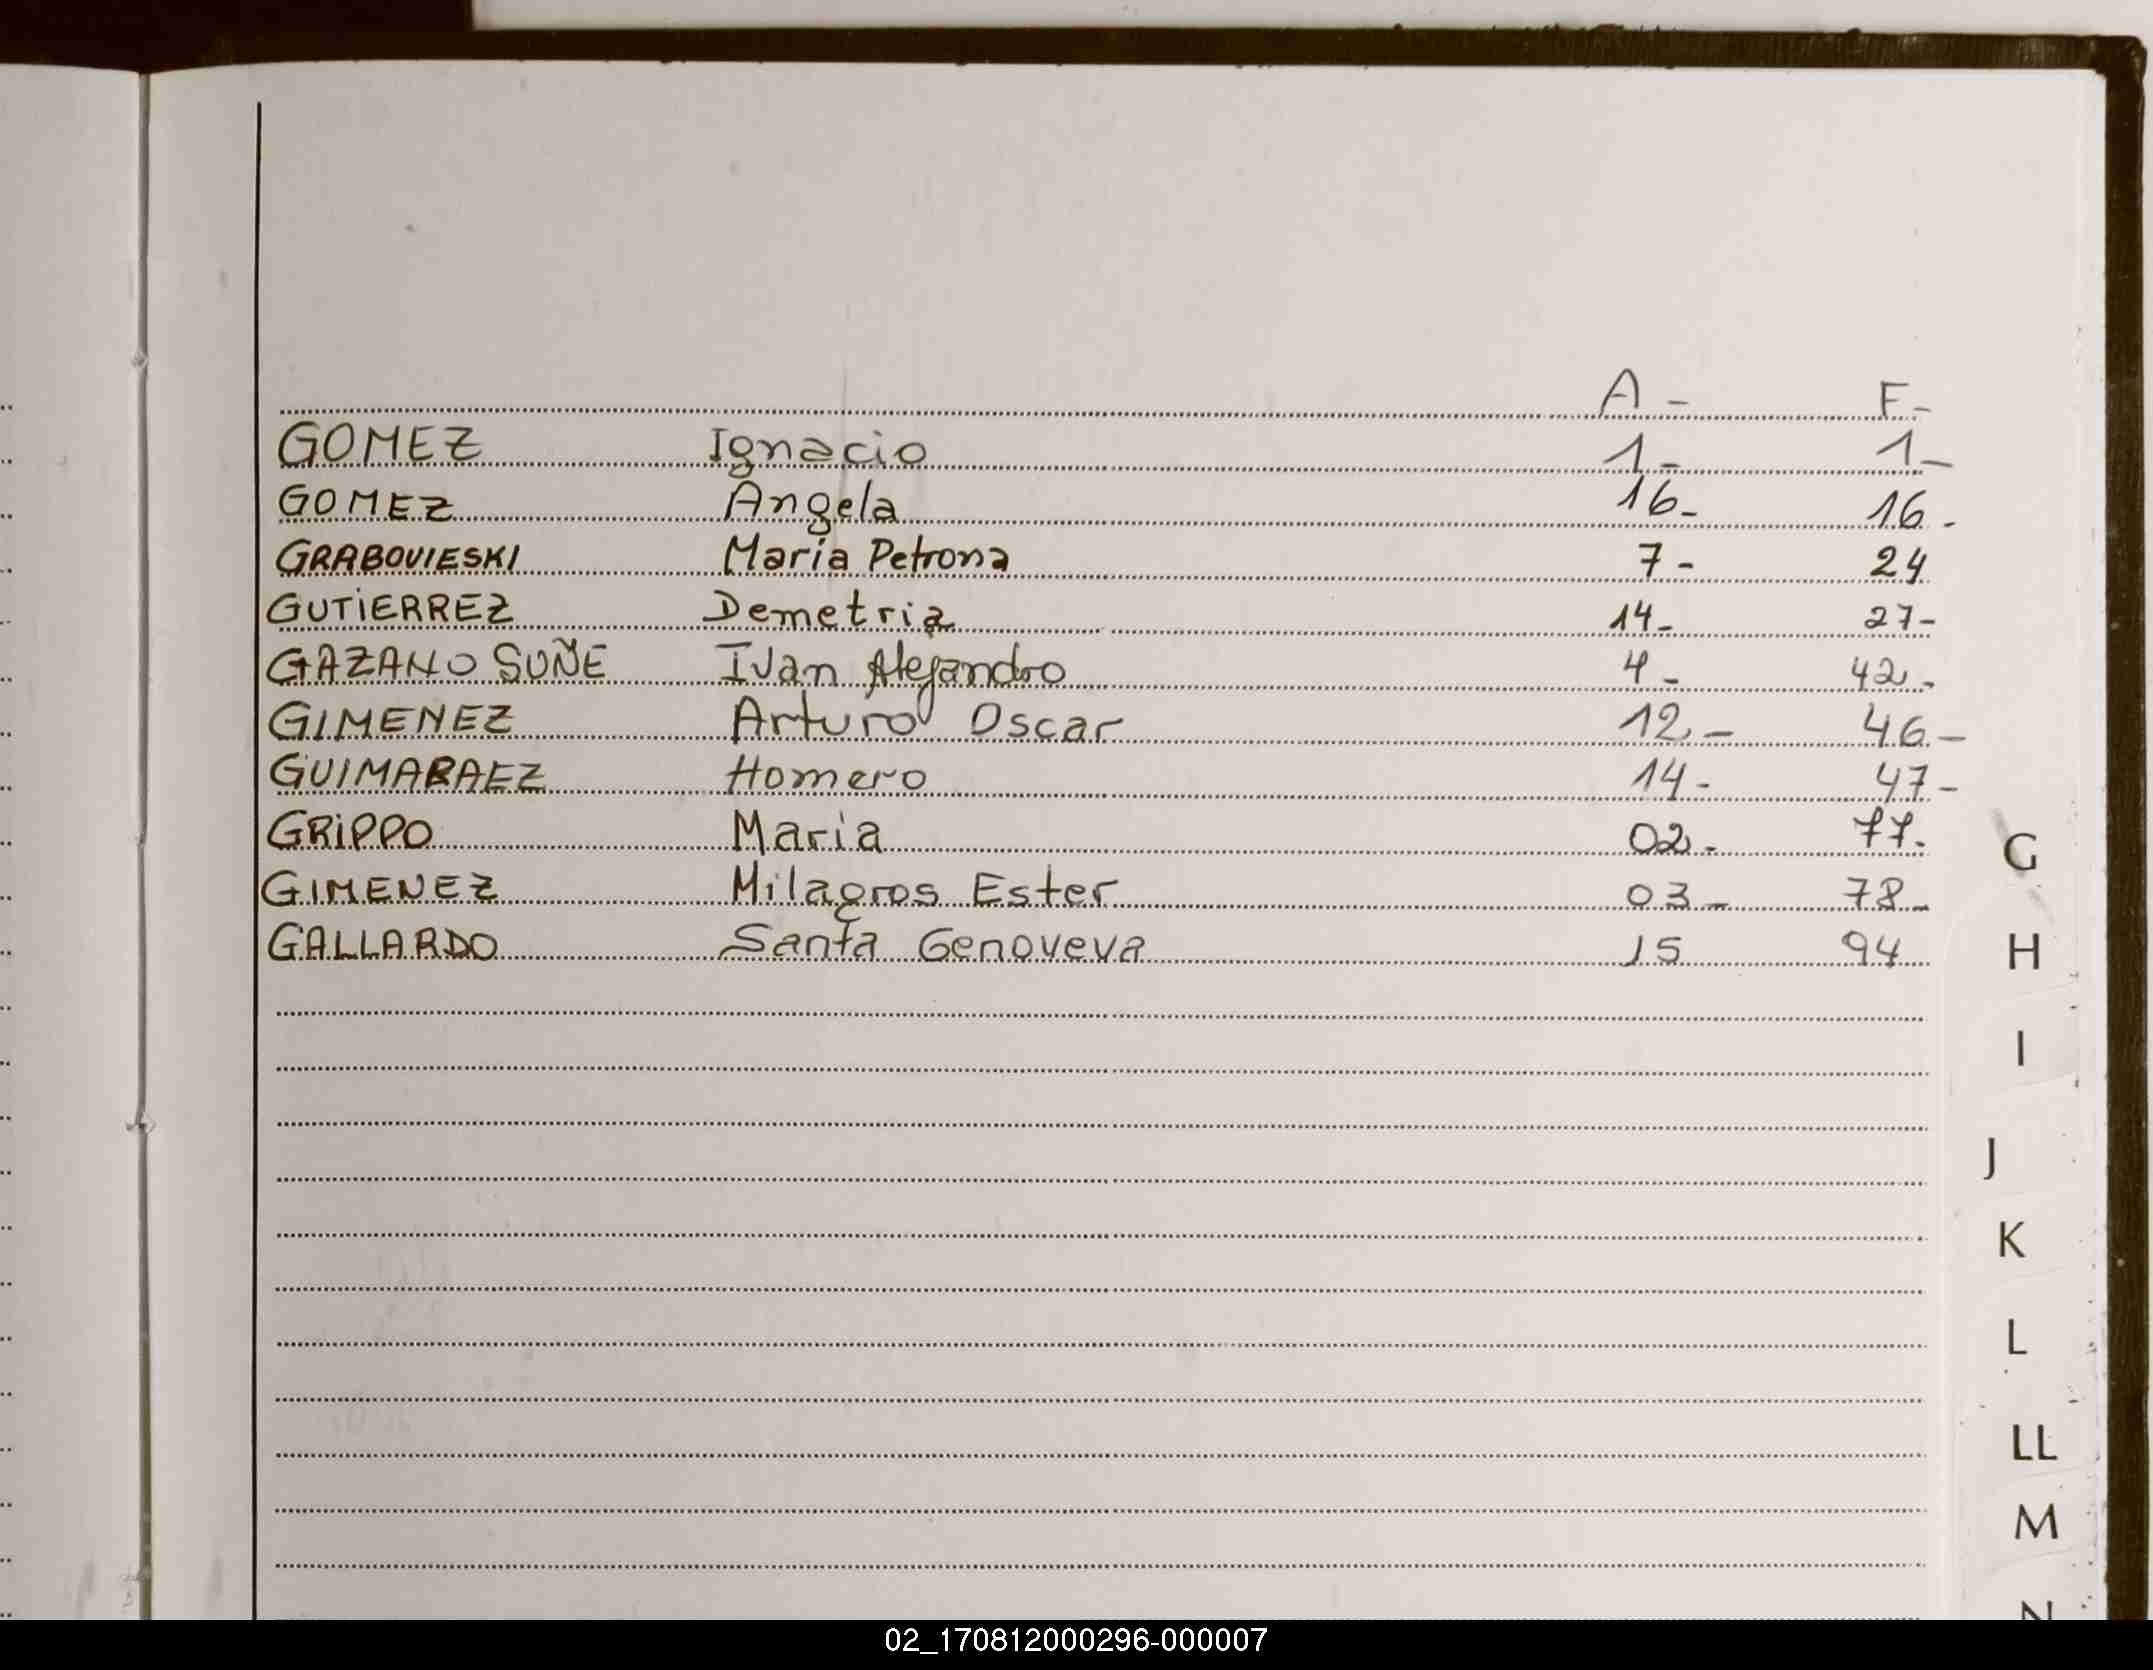 A - F-
GOMEZ Ignacio 1- 1-
GOMEZ Angela 16- 16-
GRABOVIESKI Maria Petrona 7- 24
GUTIERREZ Demetria 14- 27-
GAZANO SUÑE Ivan Alejandro 4- 42-
GIMENEZ Arturo Oscar 12- 46-
GUIMARAEZ Homero 14- 47-
GRIPPO Maria 02- 77-
GIMENEZ Milagros Ester 03- 78-
GALLARDO Santa Genoveva 15 94
G
H
I
J
K
L
LL
M
N
02_170812000296-000007